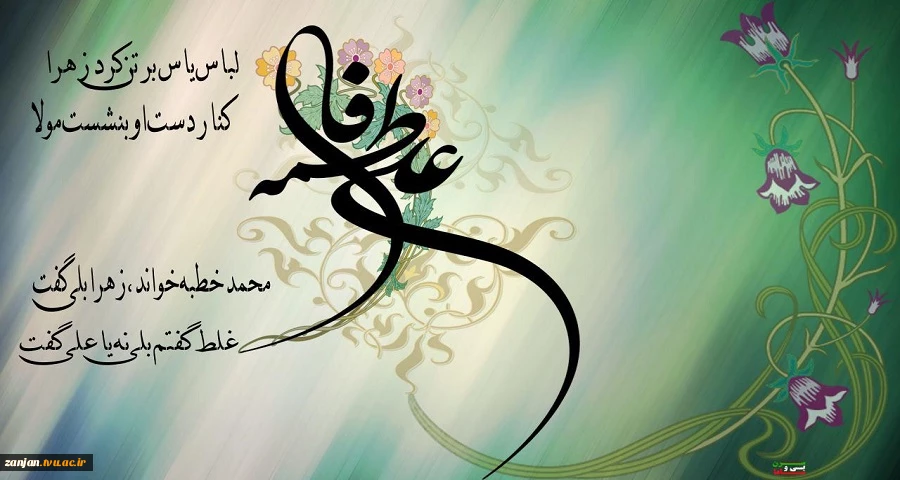 لباس یاس بر تن کرد زهرا
کنار دست او بنشست مولا
فاطمه
علی
محمد خطبه خواند، زهرا بلی گفت
غلط گفتم بلی نه یا علی گفت
zanjan.tvu.ac.ir
بی و